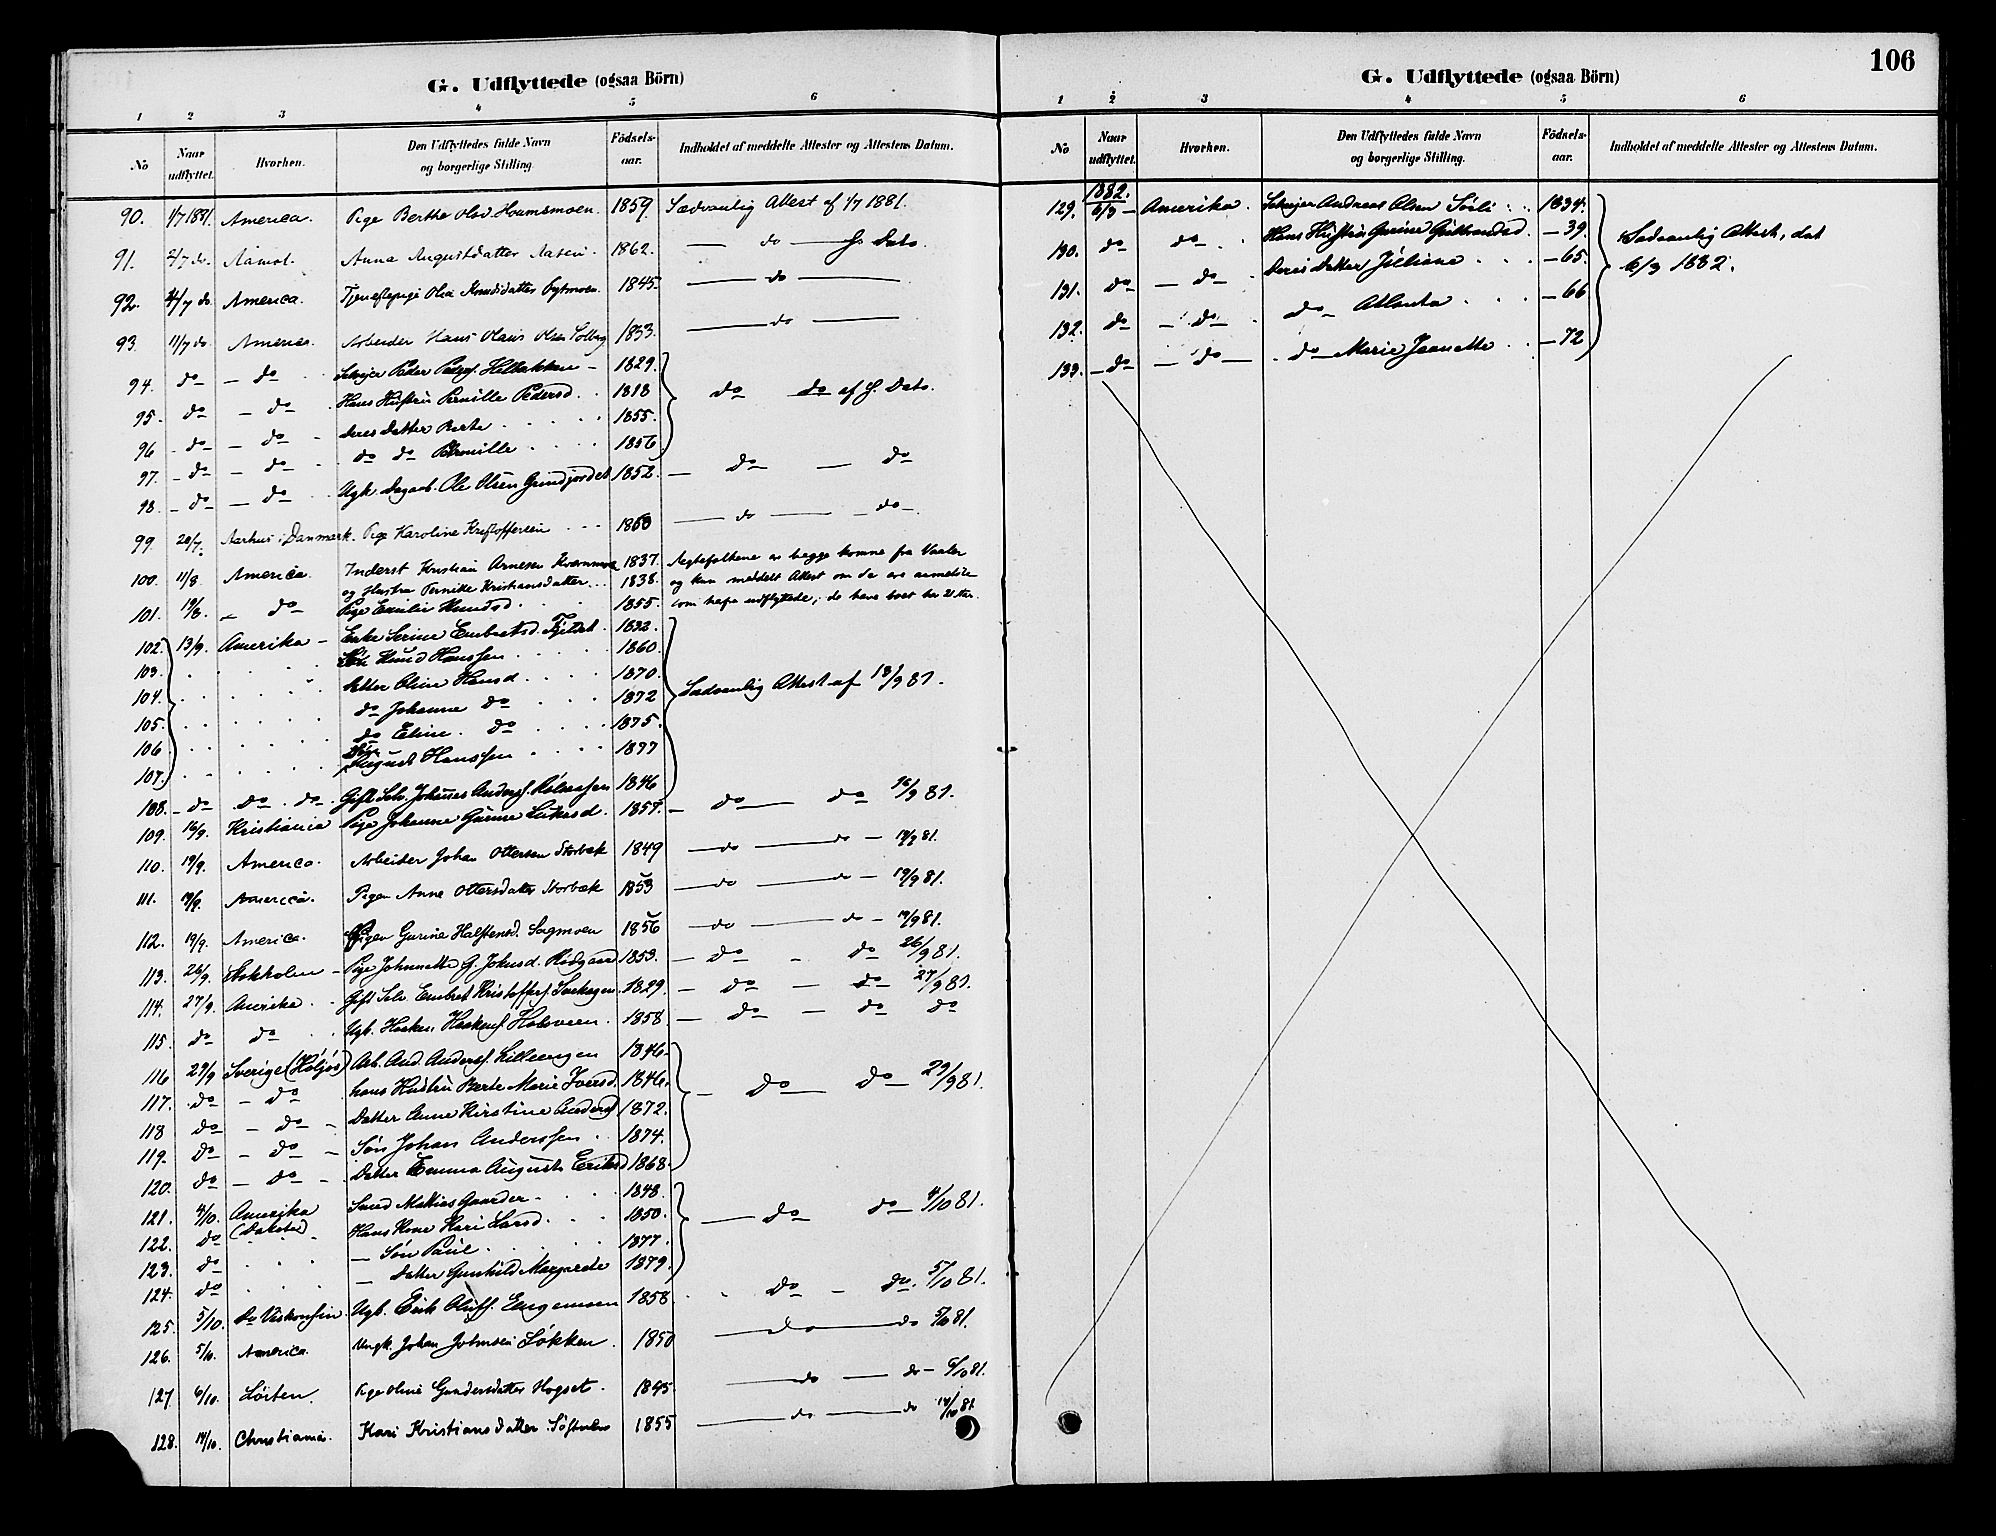 G. Udflyttede (ogsaa Börn)
1 2 3 4 5 6
No Naar udflyttet. Hvorhen. Den Udflyttedes fulde Navn og borgerlige Stilling. Födsels-aar. Indholdet af meddelte Attester og Attestens Datum.
90. 1/7 1881. America. Pige Berthe Olsd. 1859. Sædvanlig Attest af 1/7 1881.
91. do. Aamot. Anna Augustdatter Aasen. 1862. — do — S. Dato.
92. /7 do America. Tjenestepige Olia Knudsdatter 1845. — do —
93. 11/7 do. America. Arbeider Hans Olaus Olsen Solberg 1853. — do —
94. do — do Selveier Peder Peders. Helbakken — 1829.
95. do — do Hans Hustru Pernille Pedersd. 1818 do do af S. Dato.
96 - do — do - Deres Datter Berte 1855.
97. - do — do do do Pernille 1856
98. - do — do Ugk. Dagarb. Ole Olsen Grindjordet 1852. — do — do
99. 20/7. Aarhus i Danmark. Pige Karoline Kristoffersen 1860 — do — do —
100. 11/8. America. Inderst Kristian Arnesen Kvernmoen 1837. Ægtefolkene er begge komne fra Vaaler
og Hustru Pernille Kristiansdatter 1838. og kun meddelt Attest om da ere anmeldte
101. 19/8. — do Pige Emilie Knudsd. 1855. som herfra udflyttede; de have boet her 21 Aar.
102. 13/9. Amerika — Enke Serine Embretsd. Fjeldet 1832.
103. Søn Knud Hanssen 1860.
104. Datter Oline Hansd. 1870. Sædvanlig Attest af 13/9 81.
105. do Johanne do 1872
106 do Eline. do 1875.
107. Søn August Hanssen 1877
108. - do do do Gift Selv. Johannes Anders. 1846 — do — do 16/9 81.
109. 16/9. Kristiania Pige Johanne Gurine Lukasd. 1857.
110. 19/9. America. Arbeider Johan Ottersen Storbæk 1849 — do — do — 19/9 81.
111. 19/9. America. Pigen Anne Ottersdatter Storbæk 1853 — do — do — 19/9 81.
112. 19/9. America. Pigen Gurine Halstensd. Sagmoen 1856 — do — do — 19/9 81.
113. 26/9. Stokholm — Pige Johannette G. Johnsd. Rødgaard 1853. — do - do 26/9 81.
114. 27/9. Amerika Gift Selv. Embret Kristoffers. 1829 — do — do 27/9 81.
115. do do Ugk. Haaken Haakens. 1858. — do — do do
116 29/9 Sverige (Höljes) Arb. And. Anders. Lilleengen 1846.
117. do — do hans Hustru Berte Marie Iversd. 1846. — do — do — 29/9 81.
118 do — do — Datter Anne Kirstine Andersd 1872.
119. do — do — Søn Johan Anderssen 1874.
120. do — do — Datter Emma Augusta Eriksd 1868.
121. 4/10. Amerika Smed Mathias Gaarder 1848.
122. do (Dakota) Hans Kone Kari Larsd. 1850. — do do — 4/10 81.
123. do — Søn Paul 1877.
124. do — Datter Gunhild Margrete 1879.
125. 5/10. do Viskonsin Ugk. Erik Olufs. Engemoen 1858. do - do. 5/10 81.
126. 5/10. America. Ungk. Johan Johnsen Løkken. 1850 — do — do 5/10 81.
127. 6/10. Löiten. Pige Oline Gundersdatter Hogset. 1845. — do — do — 6/10 81.
128. 14/10. Christiania. Kari Kristiansdatter 1855 — do — do 14/10 81.
106
G. Udflyttede (ogsaa Börn)
1 2 3 4 5 6
No Naar udflyttet. Hvorhen. Den Udflyttedes fulde Navn og borgerlige Stilling. Födsels-aar. Indholdet af meddelte Attester og Attestens Datum.
1882.
129. 6/3 — Amerika. Selveier Andreas Olsen Sörli 1834.
130. do do Hans Hustru Gurine Gulbrandsd. — 39. Sædvanlig Attest, dat
131. do — do Deres Datter Juliane — 65. 6/3 1882.
132. do — do do Atlanta — 66
133. - do — do — do — Marie Jeanette — 72